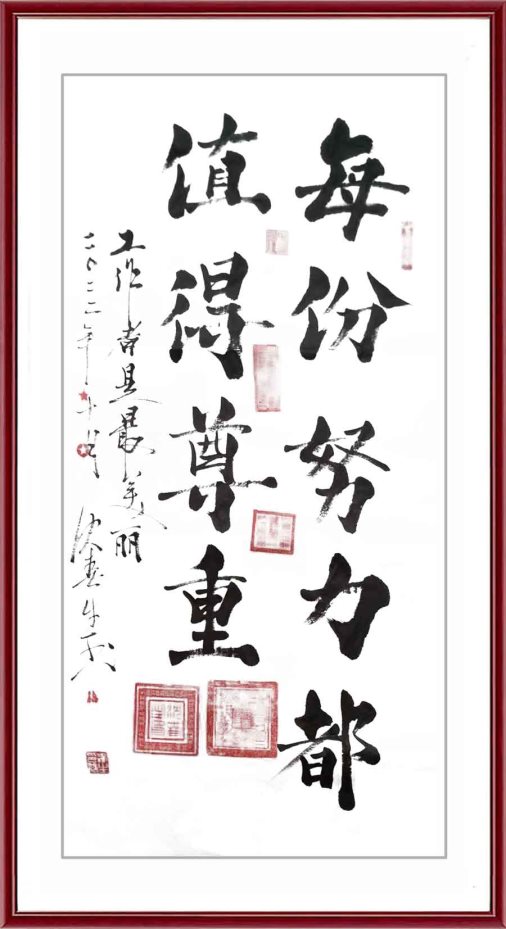 每份努力都
值得尊重
工作着是最美丽
二〇二二年十月